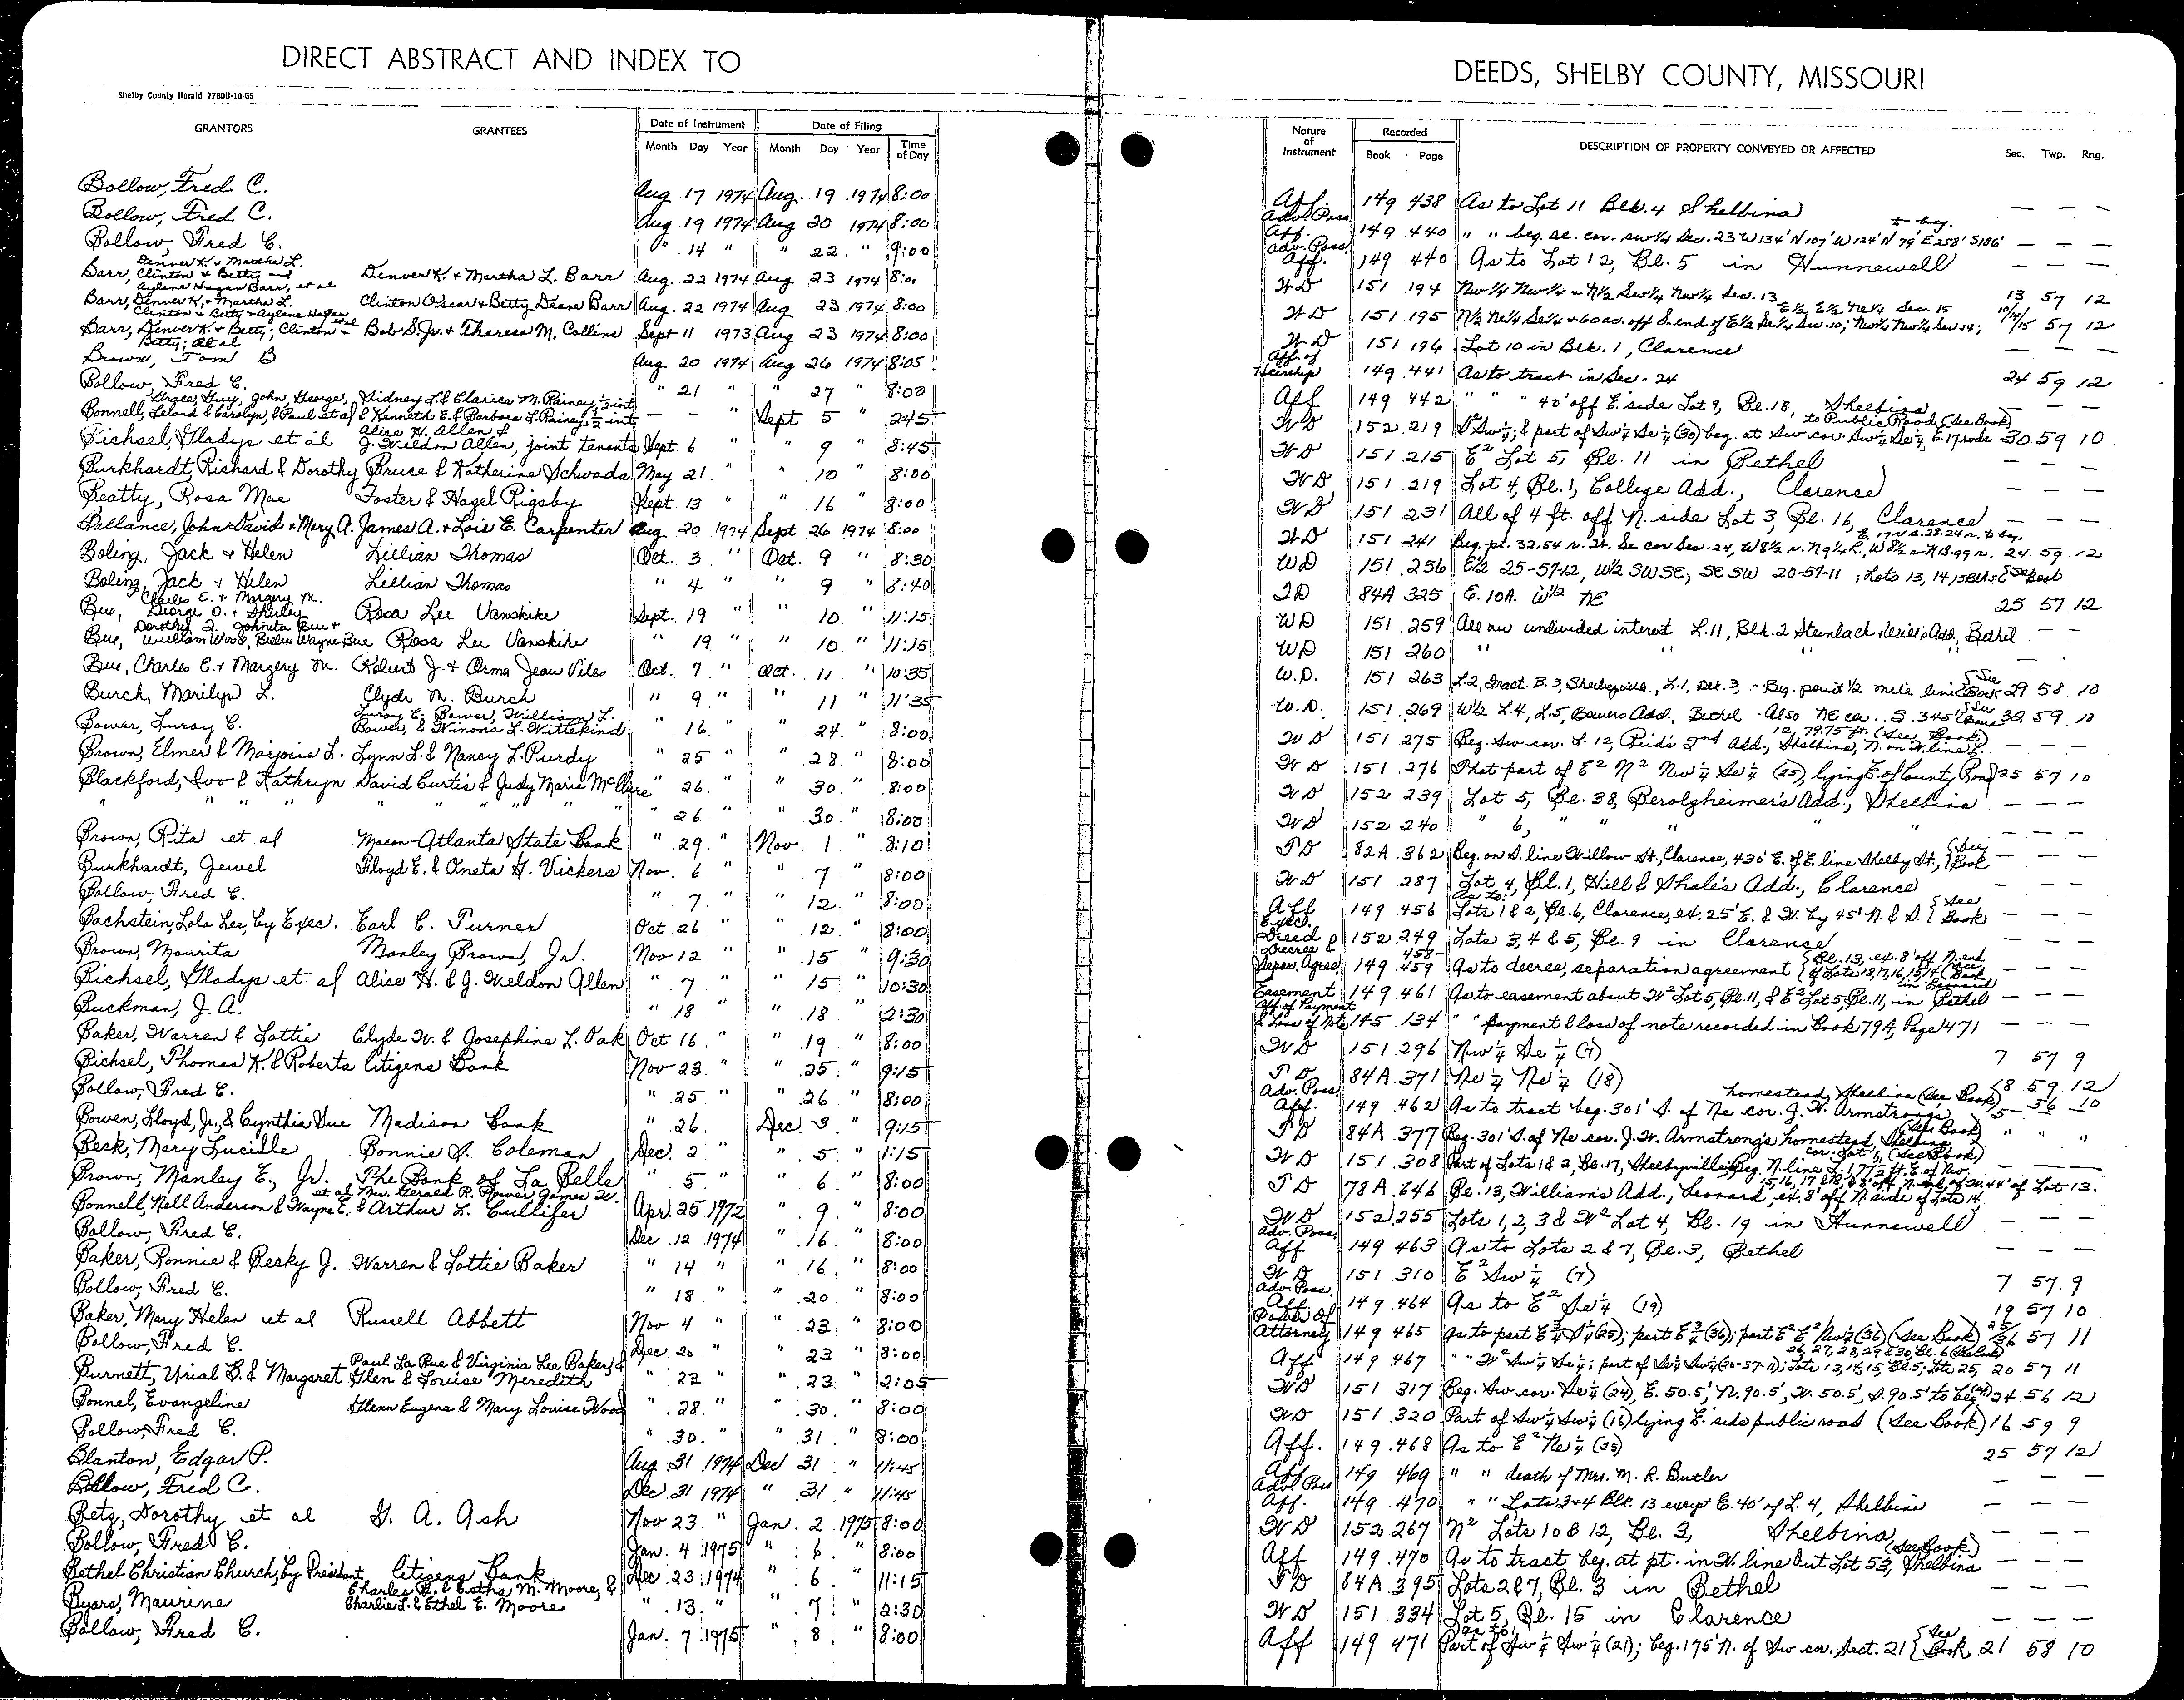 DIRECT ABSTRACT AND INDEX TO
DEEDS, SHELBY COUNTY, MISSOURI
Shelby County Herald 7780B-10-65
GRANTORS GRANTEES Date of Instrument Date of Filing
Month Day Year Month Day Year Time of Day
Nature of Instrument Recorded Book Page DESCRIPTION OF PROPERTY CONVEYED OR AFFECTED Sec. Twp. Rng.
Bollow, Fred C. Aug. 17 1974 Aug. 19 1974 8:00
Bollow, Fred C. Aug 19 1974 Aug 20 1974 8:00
Bollow, Fred C. " 14 " " 22 " 9:00
Denver K. & Martha L.
Barr, Clinton & Betty and Denver K. & Martha L. Barr Aug. 22 1974 Aug 23 1974 8:00
Aylene Hagan Barr, et al
Barr, Denver K. & Martha L. Clinton Oscar & Betty Deane Barr Aug. 22 1974 Aug 23 1974 8:00
Clinton & Betty & Aylene Hagan et al
Barr, Denver K & Betty; Clinton & Bob S. Jr. & Theresa M. Collins Sept 11 1973 Aug 23 1974 8:00
Betty; et al
Brown, Tom B Aug 20 1974 Aug 26 1974 8:05
Bollow, Fred C. " 21 " " 27 " 8:00
Grace, Guy, John, George, Sidney L. & Clarice M. Rainey, ½ int
Bonnell, Leland & Carolyn, & Paul et al & Kenneth E. & Barbara L. Rainey, ½ int — — " Sept 5 " 2:45
Alice H. Allen &
Bichsel, Gladys et al J. Weldon Allen, joint tenants Sept. 6 " " 9 " 8:45
Burkhardt, Richard & Dorothy Bruce & Katherine Schwada May 21 " " 10 " 8:00
Beatty, Rosa Mae Foster & Hazel Rigsby Sept 13 " " 16 " 8:00
Ballance, John David & Mary A. James A. & Lois E. Carpenter Aug 20 1974 Sept 26 1974 8:00
Boling, Jack & Helen Lillian Thomas Oct. 3 " Oct. 9 " 8:30
Boling, Jack & Helen Lillian Thomas " 4 " " 9 " 8:40
Charles E. & Margery M.
Bue, George O. & Shirley Rosa Lee Vanskike Sept. 19 " " 10 " 11:15
Dorothy I. Johnita Bue &
Bue, William Wood, Billie Wayne Bue Rosa Lee Vanskike " 19 " " 10 " 11:15
Bue, Charles E. & Margery M. Robert J. & Orma Jean Viles Oct. 7 " Oct. 11 " 10:35
Burch, Marilyn L. Clyde M. Burch " 9 " " 11 " 11:35
Luray C. Bower, William L.
Bower, Luray C. Bower, & Winona L. Wittekind " 16 " " 24 " 8:00
Brown, Elmer & Marjorie L. Lynn L. & Nancy L. Purdy " 25 " " 28 " 8:00
Blackford, Ivo & Kathryn David Curtis & Judy Marie McClure " 26 " " 30 " 8:00
" " " " " " " " " " 26 " " 30 " 8:00
Brown, Rita et al Macon-Atlanta State Bank " 29 " Nov. 1 " 8:10
Burkhardt, Jewel Floyd E. & Oneta H. Vickers Nov. 6 " " 7 " 8:00
Bollow, Fred C. " 7 " " 12 " 8:00
Bachstein, Lola Lee, by Exec. Earl C. Turner Oct. 26 " " 12 " 8:00
Brown, Maurita Manley Brown, Jr. Nov 12 " " 15 " 9:30
Bichsel, Gladys et al Alice H. & J. Weldon Allen " 7 " " 15 " 10:30
Buckman, J. A. " 18 " " 18 " 2:30
Baker, Warren & Lottie Clyde W. & Josephine L. Oak Oct. 16 " " 19 " 8:00
Bichsel, Thomas K. & Roberta Citizens Bank Nov 23 " " 25 " 9:15
Bollow, Fred C. " 25 " " 26 " 8:00
Bowen, Lloyd, Jr., & Cynthia Sue Madison Bank " 26 Dec. 3 " 9:15
Beck, Mary Lucille Bonnie S. Coleman Dec. 2 " " 5 " 1:15
Brown, Manley E., Jr. The Bank of La Belle " 5 " " 6 " 8:00
et al Mrs. Gerald R. Power, James W.
Bonnell, Nell Anderson & Wayne E. & Arthur L. Cullifer Apr. 25 1972 " 9 " 8:00
Bollow, Fred C. Dec 12 1974 " 16 " 8:00
Baker, Ronnie & Becky J. Warren & Lottie Baker " 14 " " 16 " 8:00
Bollow, Fred C. " 18 " " 20 " 8:00
Baker, Mary Helen et al Russell Abbett Nov. 4 " " 23 " 8:00
Bollow, Fred C. Dec. 20 " " 23 " 8:00
Paul La Rue & Virginia Lea Baker, &
Burnett, Urial B. & Margaret Glen & Louise Meredith " 23 " " 23 " 2:05
Bonnel, Evangeline Glenn Eugene & Mary Louise Wood " 28 " " 30 " 8:00
Bollow, Fred C. " 30 " " 31 " 8:00
Blanton, Edgar P. Aug 31 1974 Dec 31 " 11:45
Bollow, Fred C. Dec 31 1974 " 31 " 11:45
Betz, Dorothy et al G. A. Ash Nov 23 " Jan. 2 1975 8:00
Bollow, Fred C. Jan. 4 1975 " 6 " 8:00
Bethel Christian Church, by President Citizens Bank Dec. 23 1974 " 6 " 11:15
Charles H. & Eatha M. Moore, &
Byars, Maurine Charlie L. & Ethel E. Moore " 13 " " 7 " 2:30
Bollow, Fred C. Jan. 7 1975 " 8 " 8:00
Aff. Adv. Poss. 149 438 As to Lot 11 Blk. 4 Shelbina — — —
Aff. Adv. Poss. 149 440 " " beg. se. cor. sw¼ Sec. 23 W 134' N 107' W 124' N 79' E 258' S 186' to beg. — — —
Aff. 149 440 As to Lot 12, Bl. 5 in Hunnewell — — —
WD 151 194 Nw¼ Nw¼ & N½ Sw¼ Nw¼ Sec. 13 13 57 12
E½ E½ Ne¼ Sec. 15
WD 151 195 N½ Ne¼ Se¼ & 60 ac. off S. end of E½ Se¼ Sec. 10; Nw¼ Nw¼ Sec 14; 10/14/15 57 12
WD 151 196 Lot 10 in Blk. 1, Clarence — — —
Aff. of Heirship 149 441 As to tract in Sec. 24 24 59 12
Aff 149 442 " " " 40' off E. side Lot 9, Bl. 18, Shelbina — — —
to Public Road, (See Book)
WD 152 219 Sw¼; & part of Sw¼ Se¼ (30) beg. at Sw cor. Sw¼ Se¼, E. 17 rods 30 59 10
WD 151 215 E² Lot 5, Bl. 11 in Bethel — — —
WD 151 219 Lot 4, Bl. 1, College Add., Clarence — — —
WD 151 231 All of 4 ft. off N. side Lot 3, Bl. 16, Clarence — — —
WD 151 241 Beg. pt. 32.54 r. W. Se cor Sec. 24, W 8½ r. N 9¼ r., W 8½ r. N 18.99 r. E. 17 r. S. 28.24 r. to beg. 24 59 12
WD 151 256 E½ 25-57-12, W½ SWSE, SESW 20-57-11; Lots 13, 14, 15 Blk 5 {See Book
TD 84A 325 E. 10A. W½ NE 25 57 12
WD 151 259 All our undivided interest L. 11, Blk. 2 Steinbach Add, Bethel —
WD 151 260 " " " " —
W.D. 151 263 L. 2, Tract. B. 3, Shelbyville, L. 1, Blk. 3, - Beg. point ½ mile line {See Book 29 58 10
W.D. 151 269 W½ L. 4, L. 5, Bowers Add. Bethel - Also NE co. .. S. 345' {See Book 32 59 10
12, 79.75 ft. (See Book)
WD 151 275 Beg. Sw cor. L. 12, Reid's 2nd Add., Shelbina, N. on W. line L. — — —
WD 151 276 That part of E² N² Nw¼ Se¼ (25), lying E. of County Road 25 57 10
WD 152 239 Lot 5, Bl. 38, Berolgheimer's Add., Shelbina — — —
WD 152 240 " 6, " " " " — — —
TD 82A 362 Beg. on S. line Willow St., Clarence, 430' E. of E. line Shelby St., {See Book — — —
WD 151 287 Lot 4, Bl. 1, Hill & Shale's Add., Clarence — — —
As to:
Aff 149 456 Lots 1 & 2, Bl. 6, Clarence, ex. 25' E. & W. by 45' N. & S. {See Book — — —
Exec. Deed 152 249 Lots 3, 4 & 5, Bl. 9 in Clarence — — —
Decree & Separ. Agree. 149 458-459 As to decree, separation agreement {Bl. 13, ex. 8' off N. end of Lots 18, 17, 16, 15, 14 (See Book in Leonard — — —
Easement 149 461 As to easement about W² Lot 5, Bl. 11, & E² Lot 5, Bl. 11, in Bethel — — —
Aff. of Payment & Loss of Note 145 134 " " payment & loss of note recorded in Book 79A, Page 471 — — —
WD 151 296 Nw¼ Se¼ (7) 7 57 9
TD 84A 371 Ne¼ Ne¼ (18) 18 59 12
homestead, Shelbina (See Book)
Adv. Poss. Aff. 149 462 As to tract beg. 301' S. of Ne cor. J. W. Armstrong's 5 56 10
TD 84A 377 Beg. 301' S. of Ne cor. J. W. Armstrong's homestead, Shelbina (See Book) " " "
cor. Lot 1, (See Book)
WD 151 308 Part of Lots 1 & 2, Bl. 17, Shelbyville, Beg. N. line L. 1, 77½ ft. E. of Nw. — — —
15, 16, 17 & 18, & 8' off N. end of W. 44' of Lot 13.
TD 78A 646 Bl. 13, William's Add., Leonard, ex. 8' off N. side of Lots 14,
WD 152 255 Lots 1, 2, 3 & W² Lot 4, Bl. 19 in Hunnewell — — —
Adv. Poss. Aff 149 463 As to Lots 2 & 7, Bl. 3, Bethel — — —
WD 151 310 E² Sw¼ (7) 7 57 9
Adv. Poss. Aff. 149 464 As to E² Se¼ (19) 19 57 10
Power of Attorney 149 465 As to part E¾ S½ (25); part E¾ (36); part E² E² Nw¼ (36) (See Book) 25/36 57 11
26, 27, 28, 29 & 30, Bl. 6 (Shelbina)
Aff 149 467 " " W² Sw¼ Se¼; part of Se¼ Sw¼ (20-57-11); Lots 13, 14, 15, Bl. 5; Lots 25, 20 57 11
WD 151 317 Beg. Sw cor. Se¼ (24), E. 50.5', N. 90.5', W. 50.5', S. 90.5' to beg. 24 56 12
WD 151 320 Part of Sw¼ Sw¼ (16) lying E. side public road (See Book) 16 59 9
Aff. 149 468 As to E² Ne¼ (25) 25 57 12
Aff 149 469 " " death of Mrs. M. R. Butler — — —
Adv. Poss Aff. 149 470 " " Lots 3 & 4 Blk. 13 except E. 40' of L. 4, Shelbina — — —
WD 152 267 N² Lots 10 & 12, Bl. 3, Shelbina — — —
Aff 149 470 As to tract beg. at pt. in W. line Out Lot 53, Shelbina (See Book) — — —
TD 84A 395 Lots 2 & 7, Bl. 3 in Bethel — — —
WD 151 334 Lot 5, Bl. 15 in Clarence — — —
As to:
Aff 149 471 Part of Sw¼ Sw¼ (21); beg. 175' N. of Sw cor. Sect. 21 {See Book 21 58 10